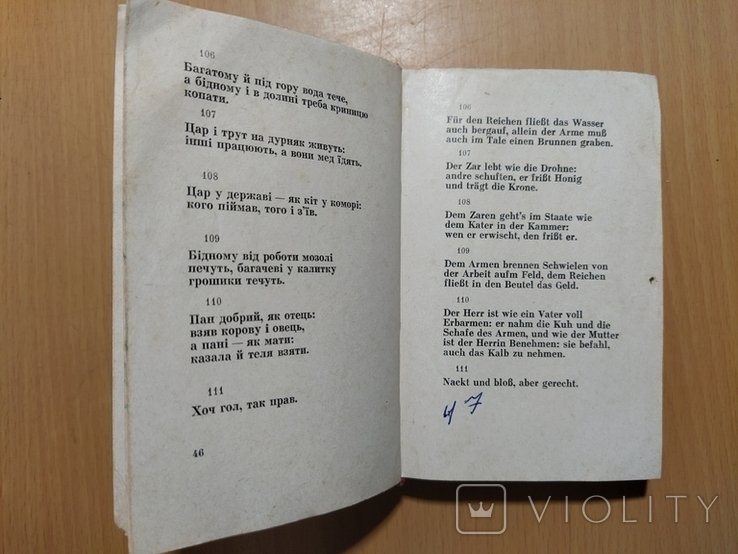 106
Багатому й під гору вода тече,
а бідному і в долині треба криницю
копати.
107
Цар і трут на дурняк живуть:
інші працюють, а вони мед їдять.
108
Цар у державі — як кіт у коморі:
кого піймав, того і з'їв.
109
Бідному від роботи мозолі
печуть, багачеві у калитку
грошики течуть.
110
Пан добрий, як отець:
взяв корову і овець,
а пані — як мати:
казала й теля взяти.
111
Хоч гол, так прав.
46
106
Für den Reichen fließt das Wasser
auch bergauf, allein der Arme muß
auch im Tale einen Brunnen graben.
107
Der Zar lebt wie die Drohne:
andre schuften, er frißt Honig
und trägt die Krone.
108
Dem Zaren geht's im Staate wie
dem Kater in der Kammer:
wen er erwischt, den frißt er.
109
Dem Armen brennen Schwielen von
der Arbeit aufm Feld, dem Reichen
fließt in den Beutel das Geld.
110
Der Herr ist wie ein Vater voll
Erbarmen: er nahm die Kuh und die
Schafe des Armen, und wie der Mutter
ist der Herrin Benehmen: sie befahl,
auch das Kalb zu nehmen.
111
Nackt und bloß, aber gerecht.
47
VIOLITY